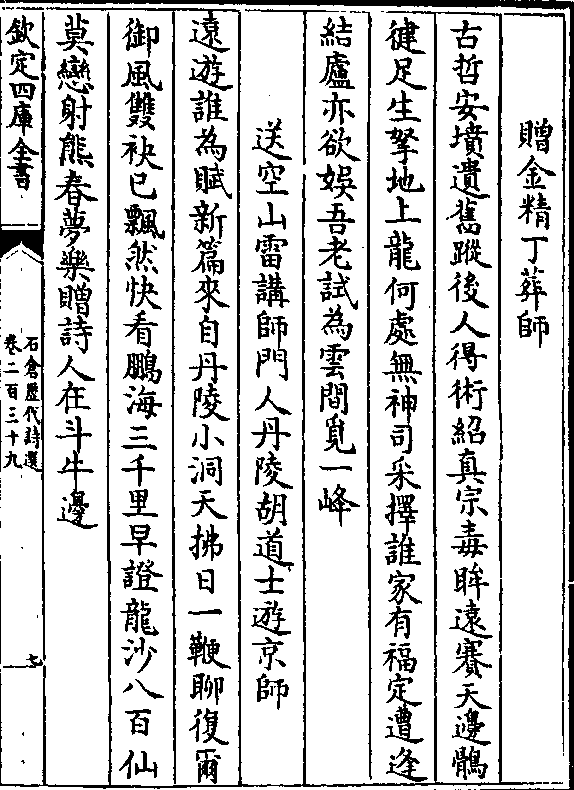 贈金精丁葬師
古哲安墳遺舊蹤後人得術紹真宗毒眸遠賽天邊鶻
健足生拏地上龍何處無神司采擇誰家有福定遭逢
結廬亦欲娛吾老試為雲間覓一峰
送空山雷講師門人丹陵胡道士遊京師
遠遊誰為賦新篇來自丹陵小洞天拂日一鞭聊復爾
御風雙袂已飄然快看鵬海三千里早證龍沙八百仙
莫戀射熊春夢樂贈詩人在斗牛邊
欽定四庫全書
石倉歷代詩選
卷二百三十九
七